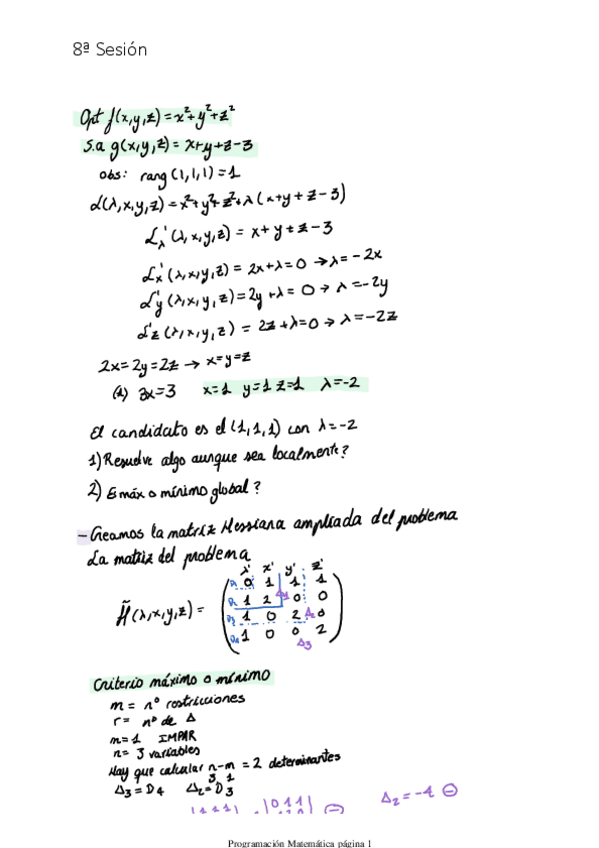 8ª Sesión
Opt f(x,y,z)=x²+y²+z²
s.a g(x,y,z)= x+y+z-3
obs: rang (1,1,1)=1
L(λ,x,y,z)=x²+y²+z²+λ(x+y+z-3)
L'λ (λ,x,y,z) = x+y+z-3
L'x (λ,x,y,z) = 2x+λ=0 →λ=-2x
L'y (λ,x,y,z)=2y+λ=0→ λ=-2y
L'z (λ,x,y,z) = 2z+λ=0→λ=-2z
2x=2y=2z → x=y=z
3x=3 x=1 y=1 z=1 λ=-2
El candidato es el (1,1,1) con λ=-2
1) Resuelve algo aunque sea localmente?
2) Es máx o mínimo global?
- Creamos la matriz Hessiana ampliada del problema
La matriz del problema
λ' x' y' z'
0 1 1 1
H̃(λ,x,y,z) = 1 2 0 0
1 0 2 0
1 0 0 2
Δ3
Criterio máximo o mínimo
m = nº restricciones
r = nº de Δ
m=1 IMPAR
n= 3 variables
Hay que calcular n-m = 2 determinantes
3 1
Δ3=D4 Δ2=D3
Δ2=-4 ⊖
Programación Matemática página 1